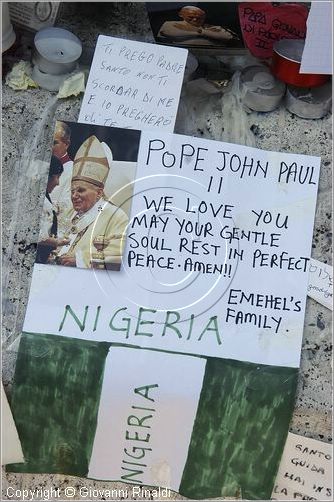 TI PREGO PADRE
SANTO NON TI
SCORDAR DI ME
E IO PREGHERÒ
POPE JOHN PAUL
II
WE LOVE YOU
MAY YOUR GENTLE
SOUL REST IN PERFECT
PEACE. AMEN!!
EMEHEL'S
FAMILY.
NIGERIA
NIGERIA
SANTO
GUIDA
Copyright © Giovanni Rinaldi